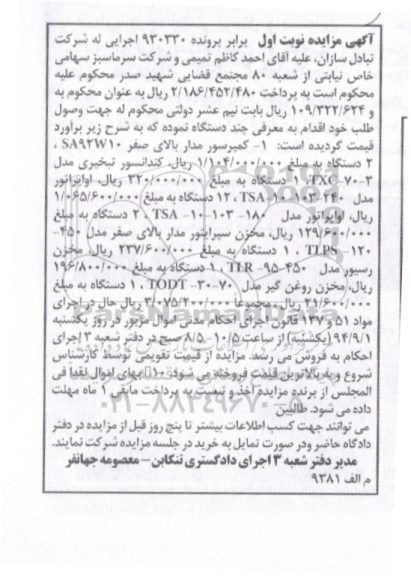 آگهی مزایده نوبت اول برابر پرونده ۹۳۰۳۳۰ اجرایی له شرکت
تبادل سازان، علیه آقای احمد کاظم تمیمی و شرکت سرماسبز سهامی
خاص نیابتی از شعبه ۸۰ مجتمع قضایی شهید صدر محکوم علیه
محکوم است به پرداخت ۲/۱۸۶/۴۵۲/۴۸۰ ریال به عنوان محکوم به
و ۱۰۹/۳۲۲/۶۲۴ ریال بابت نیم عشر دولتی محکوم له جهت وصول
طلب خود اقدام به معرفی چند دستگاه نموده که به شرح زیر براورد
قیمت گردیده است: ۱- کمپرسور مدار بالای صفر SA۹۲W۱۰ ،
۲ دستگاه به مبلغ ۱/۱۰۴/۰۰۰/۰۰۰ ریال، کندانسور تبخیری مدل
۳-۷۰-TXC ، ۱ دستگاه به مبلغ ۳۲۰/۰۰۰/۰۰۰ ریال، اواپراتور
مدل ۲۴۰-۱۰۳-۱۰-TSA ، ۱۲ دستگاه به مبلغ ۱/۰۶۵/۶۰۰/۰۰۰
ریال، اواپریتور مدل ۱۸۰-۱۰۳-۱۰-TSA ، ۲ دستگاه به مبلغ
۱۲۹/۶۰۰/۰۰۰ ریال، مخزن سپراتور مدار بالای صفر مدل ۴۵۰-
۱۲۰-TLPS ، ۱ دستگاه به مبلغ ۲۳۷/۶۰۰/۰۰۰ ریال، مخزن
رسیور مدل ۴۵۰-۹۵-TLR ، ۱ دستگاه به مبلغ ۱۹۶/۸۰۰/۰۰۰
ریال، مخزن روغن گیر مدل ۷۰-۳۰-TODT ، ۱ دستگاه به مبلغ
۲۱/۶۰۰/۰۰۰ ریال، مجموعا ۳/۰۷۵/۲۰۰/۰۰۰ ریال حال در اجرای
مواد ۵۱ و ۱۳۷ قانون اجرای احکام مدنی اموال مزبور در روز یکشنبه
۹۴/۹/۱ (یکشنبه) از ساعت ۱۰/۵-۸/۵ صبح در دفتر شعبه ۳ اجرای
احکام به فروش می رسد. مزایده از قیمت تقویمی توسط کارشناس
شروع و به بالاترین قیمت فروخته می شود. ۱۰٪ بهای اموال نقدا فی
المجلس از برنده مزایده اخذ و نسبت به پرداخت مابقی ۱ ماه مهلت
داده می شود. طالبین
می توانند جهت کسب اطلاعات بیشتر تا پنج روز قبل از مزایده در دفتر
دادگاه حاضر ودر صورت تمایل به خرید در جلسه مزایده شرکت نمایند.
مدیر دفتر شعبه ۳ اجرای دادگستری تنکابن- معصومه جهانفر
م الف ۹۳۸۱
ParsNamadData
۰۲۱-۸۸۳۴۹۶۷۰-۵